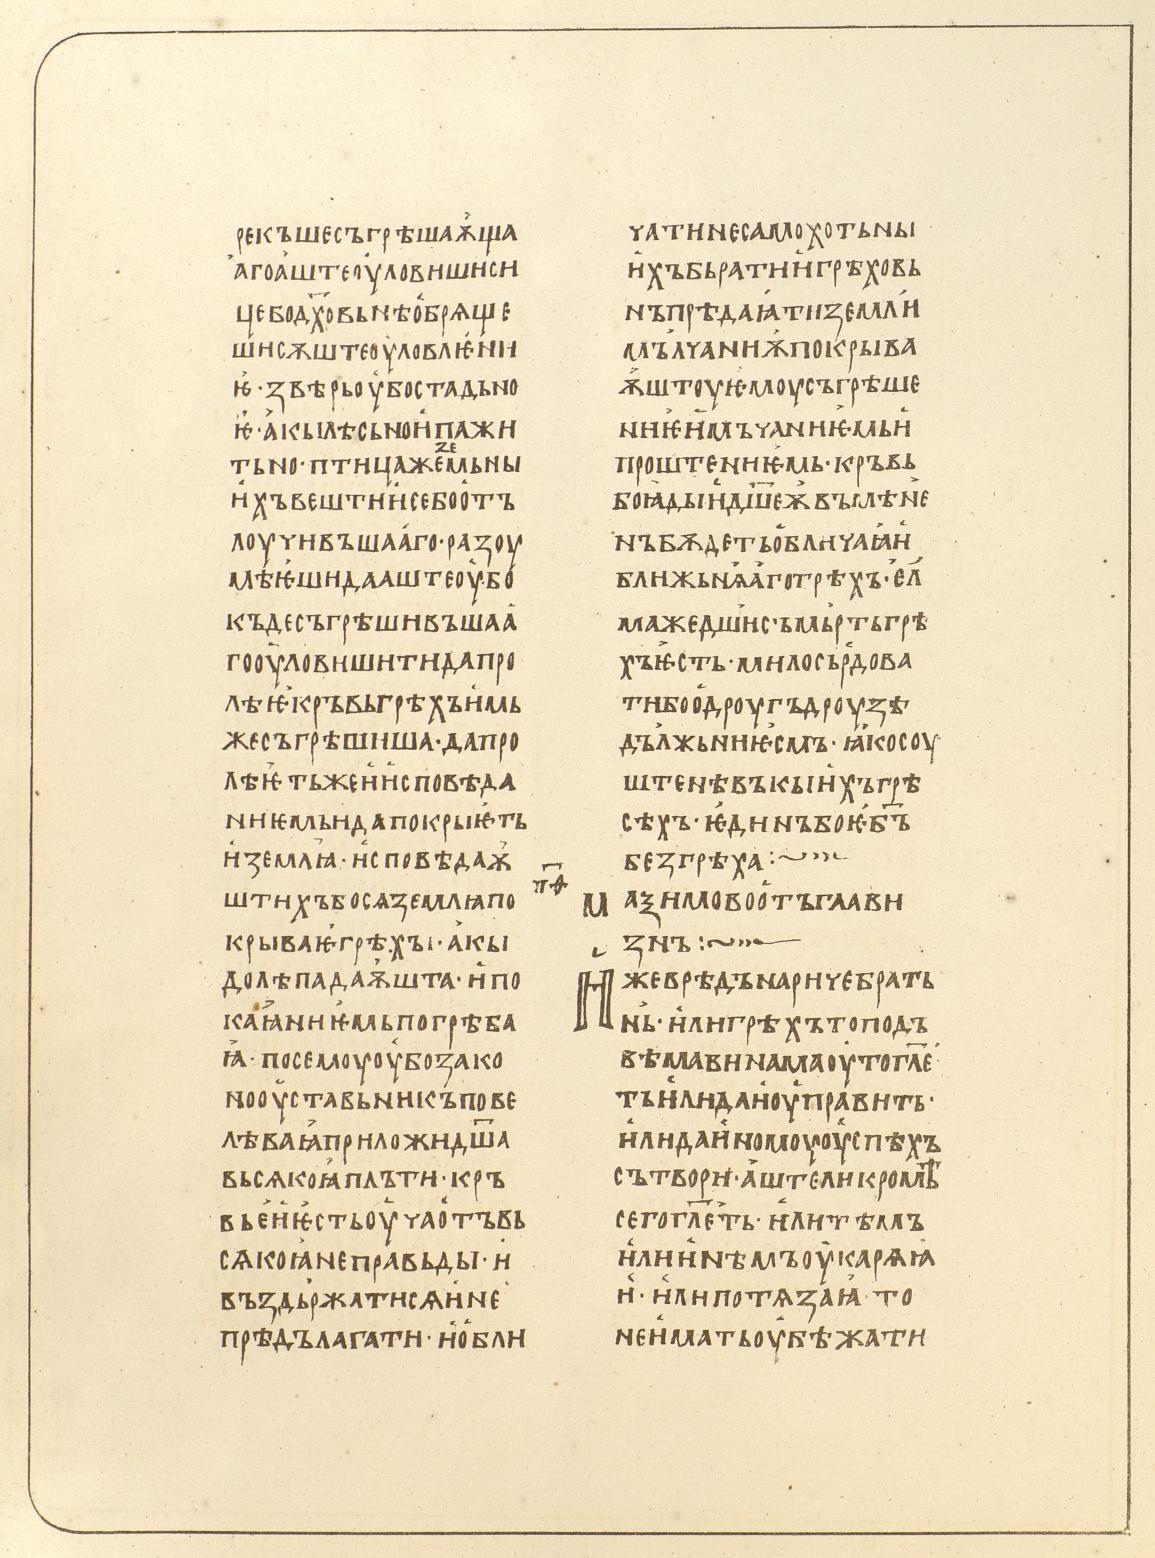 рекъшесъгрѣшаѭща
агоаштеѹловишиси
цебодх҃овьнѣобрѧще
шисѫштеѹловлѥни
ѥ · звѣрьоубостадьно
ѥ · акылѣсьноипажи
тьно · птицажеземьны
ихъвештиисебоотъ
лоучивъшааго · разоу
мѣѥшидааштеоубо
къдесъгрѣшивъшаа
гооуловишитидапро
лѣѥкръвьгрѣхъимь
жесъгрѣшиша · дапро
лѣѥтьжеиисповѣда
ниѥмьидапокрыѥть
иземлꙗ · исповѣдаѭ
штихъбосѧземлꙗпо
крываѥгрѣхы · акы
долѣпадаѭшта · ипо
каꙗниѥмьпогрѣба
ꙗ · посемоуоубозако
нооуставьникъпове
лѣваꙗприложидш҃а
вьсѧкоꙗплъти · кръ
вьеиѥстьоучаотъвь
сѧкоꙗнеправьды · и
въздьржатисѧине
прѣдълагати · иобли
чатинесамохотьны
ихъбьратиигрѣховь
нъпрѣдаꙗтиземли
мълчаниѭпокрыва
ѭштоуѥмоусъгрѣше
ниѥимъчаниѥмьи
проштениѥмь · кръвь
боꙗдыидш҃еѭвъмѣне
нъбѫдетьобличаꙗи
ближьнѧагогрѣхъ · ел҃
мажедшис · ъмьртьгрѣ
хъѥсть · милосьрдова
тибоодроугъдроузѣ
дължьниѥсмъ · ꙗкосоу
штенѣвъкыихъгрѣ
сѣхъ · ѥдинъбоѥб҃ъ
безгрѣха :~
пѳ҃
мазимовоотъглави
знъ :~
Ижеврѣдънаричебрать
нь · илигрѣхътоподъ
вѣмавинамаоутогл҃е
тьилидаиоуправить ·
илидаиномоуоуспѣхъ
сътвори · аштеликромѣ
сегогл҃еть · илитѣмъ
илиинѣмъоукарѧꙗ
и · илипотѧзаꙗ · то
неиматьоубѣжати